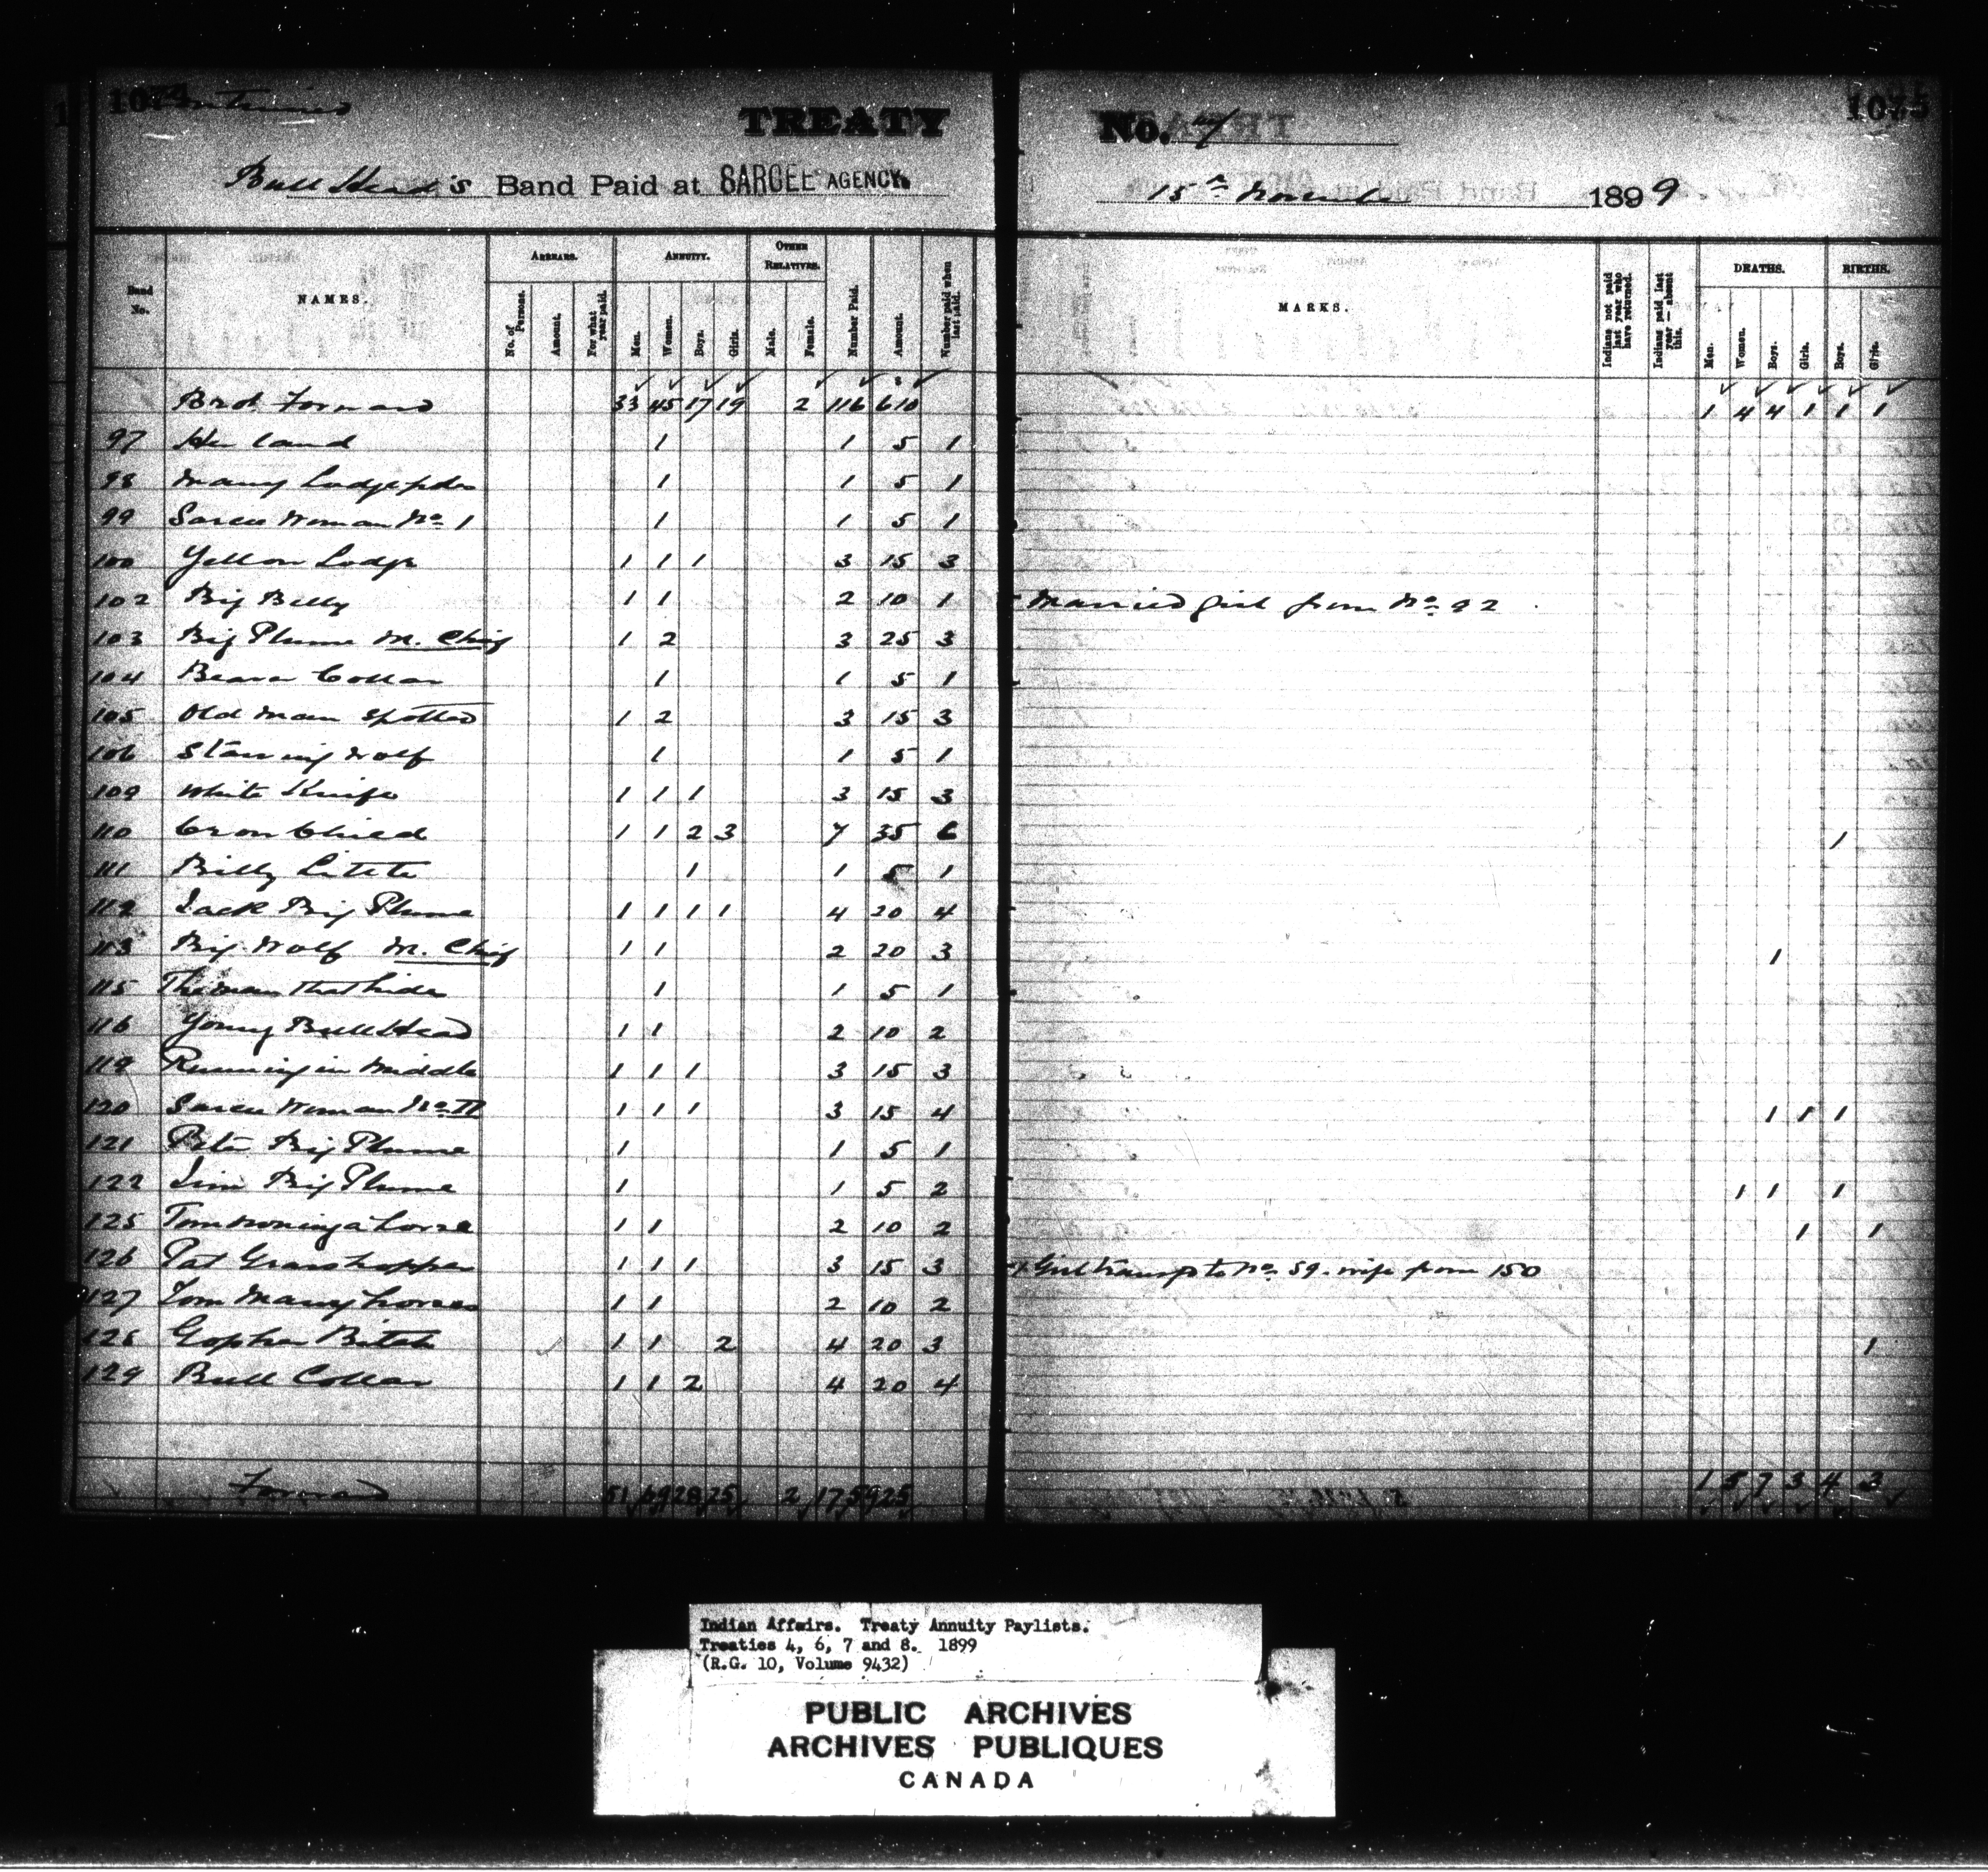 1074 Continued
TREATY No. 7 1075
Bull Head's Band Paid at SARCEE AGENCY. 15th November 1899
Band No. NAMES. ARREARS. No. of Persons. Amount. For what year paid. ANNUITY. Men. Women. Boys. Girls. OTHER RELATIVES. Male. Female. Number Paid. Amount. Number paid when last paid. MARKS. Indians not paid last year who have returned. Indians paid last year — absent this. DEATHS. Men. Women. Boys. Girls. BIRTHS. Boys. Girls.
Brot Forward 33 45 17 19 2 116 610 1 4 4 1 1 1
97 1 1 5 1
98 Many Lodgepoles 1 1 5 1
99 Sarcee Woman No 1 1 1 5 1
100 Yellow Lodge 1 1 1 3 15 3
102 Big Belly 1 1 2 10 1 Married girl from No 92
103 Big Plume M. Chief 1 2 3 25 3
104 Beaver Collar 1 1 5 1
105 Old Man Spotted 1 2 3 15 3
106 Starving Wolf 1 1 5 1
109 White Knife 1 1 1 3 15 3
110 Crow Child 1 1 2 3 7 35 6 1
111 Billy Littete 1 1 5 1
112 Jack Big Plume 1 1 1 1 4 20 4
113 Big Wolf M. Chief 1 1 2 20 3 1
115 The Man that hides 1 1 5 1
116 Young Bull Head 1 1 2 10 2
119 Running in Middle 1 1 1 3 15 3
120 Sarcee Woman No II 1 1 1 3 15 4 1 1 1
121 Peter Big Plume 1 1 5 1
122 Jim Big Plume 1 1 5 2 1 1 1
125 Tom Owning a horse 1 1 2 10 2 1 1
126 Pat Grasshopper 1 1 1 3 15 3 Girl transf to No 59. wife from 150
127 Tom Many horses 1 1 2 10 2
128 Gopher Bitch 1 1 2 4 20 3 1
129 Bull Collar 1 1 2 4 20 4
Forward 51 69 28 25 2 175 925 1 5 7 3 4 3
Indian Affairs. Treaty Annuity Paylists.
Treaties 4, 6, 7 and 8. 1899
(R.G. 10, Volume 9432)
PUBLIC ARCHIVES
ARCHIVES PUBLIQUES
CANADA